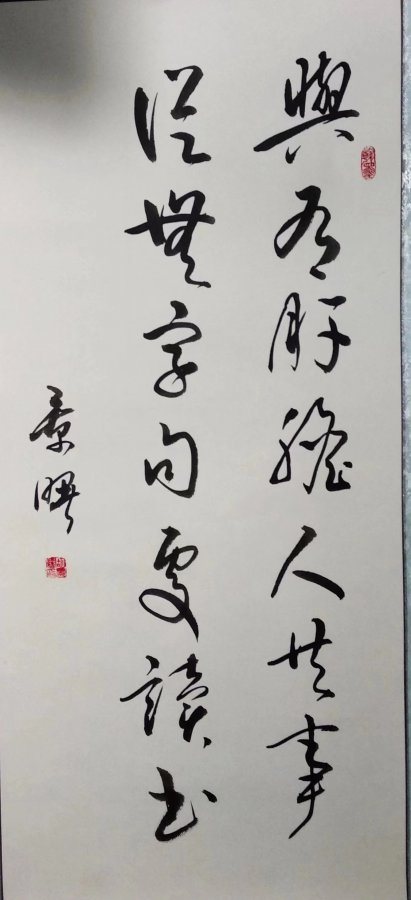 與有肝膽人共事
從無字句處讀書
景